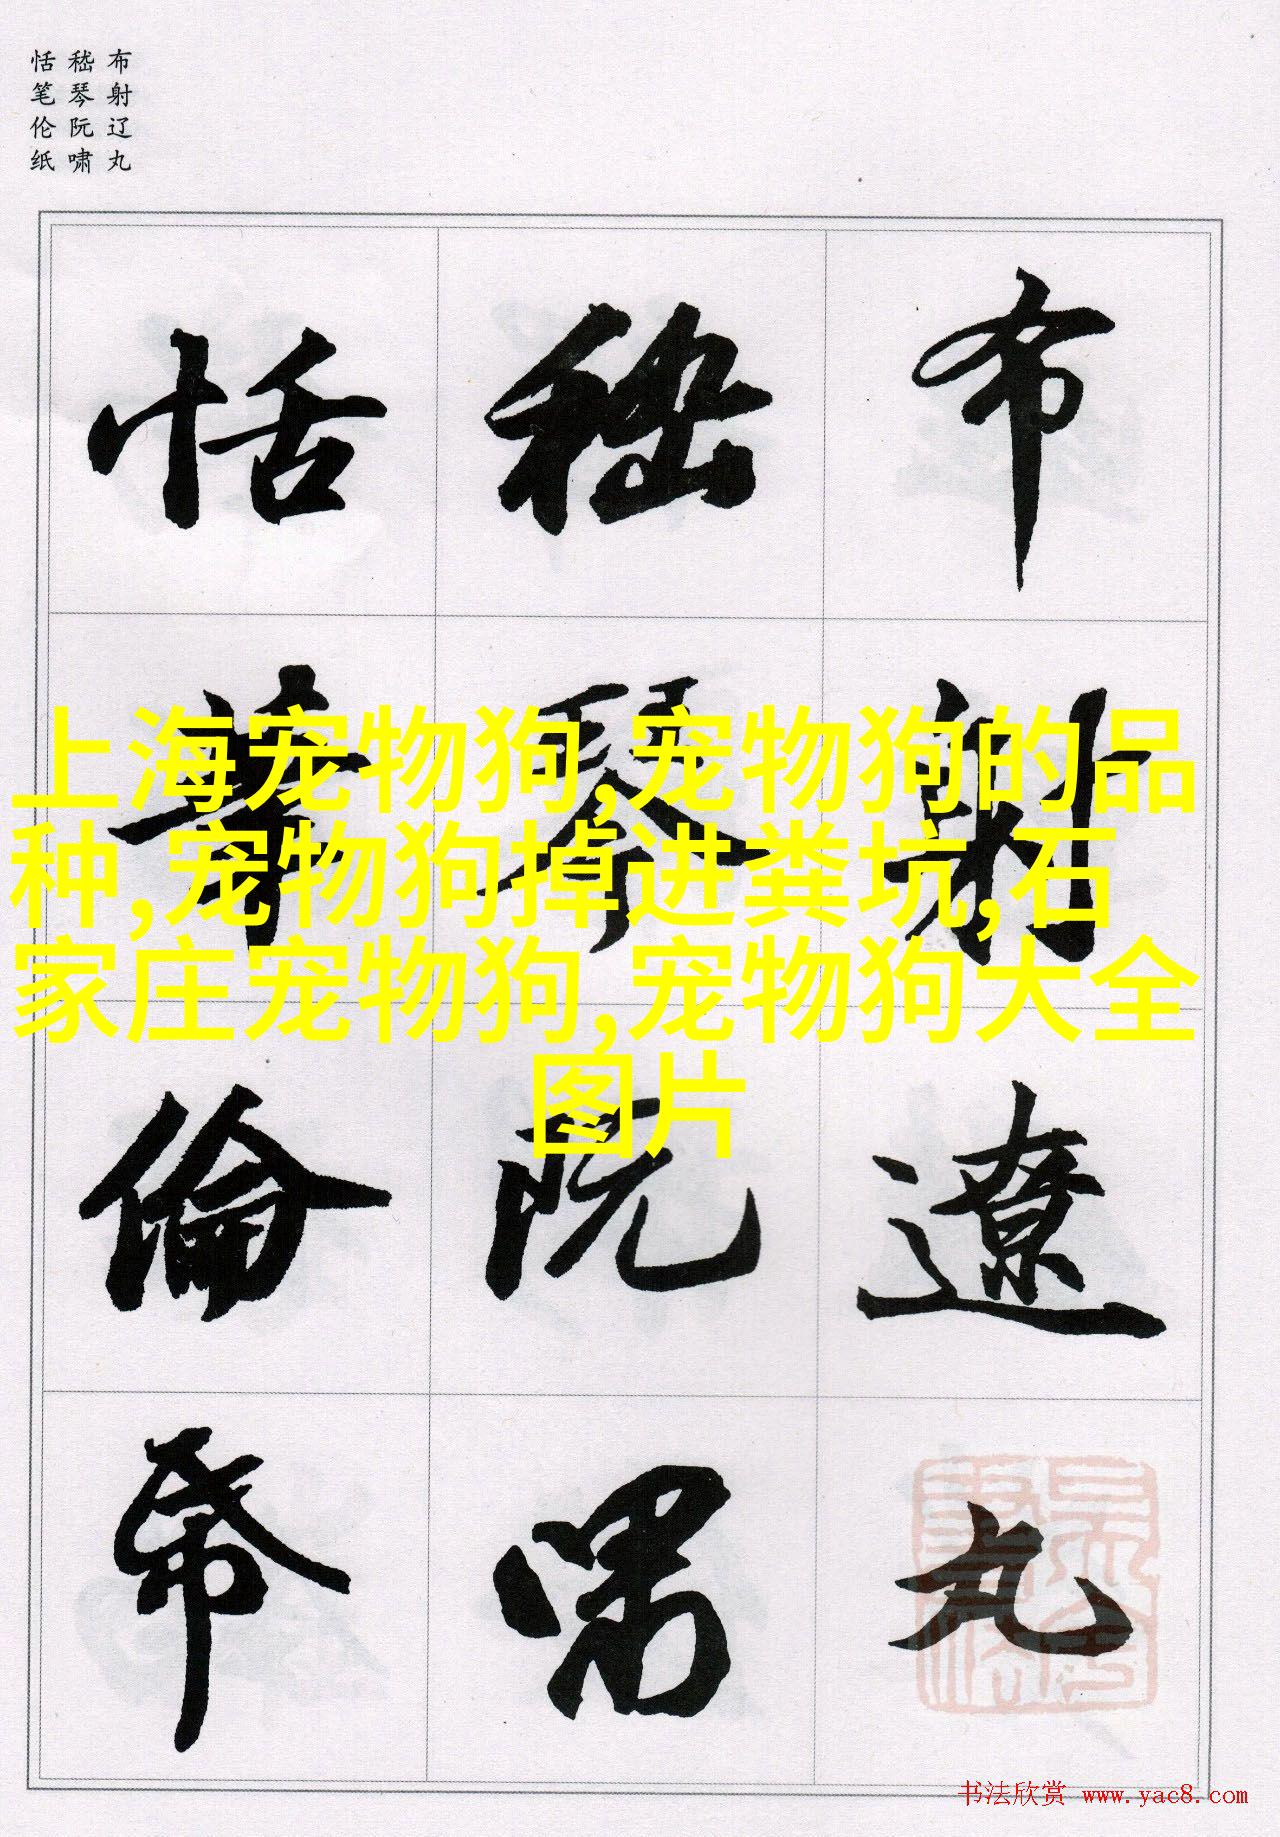 布射辽丸
嵇琴阮啸
恬笔伦纸
布射遼丸
嵇琴阮嘯
恬筆倫帋
上海宠物狗,宠物狗的品
种,宠物狗掉进粪坑,石
家庄宠物狗,宠物狗大全
图片
书法欣赏 www.yac8.com